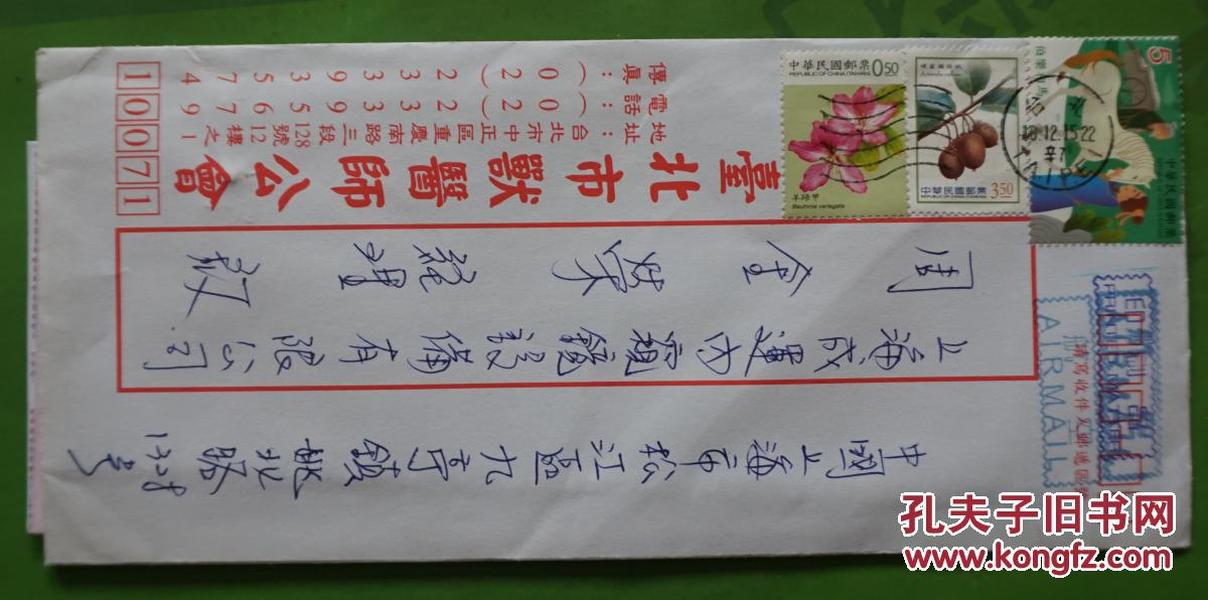 中國上海市松江區九亭鎮姚北路1328号
上海成運內窺鏡設備有限公司
周金 經理 收
臺北市獸醫師公會
地址：台北市中正區重慶南路三段128號12樓之1
電話：(02)23395679
傳眞：(02)23393574
10071
中華民國郵票 0.50
REPUBLIC OF CHINA (TAIWAN)
羊蹄甲
Bauhinia variegata
中華民國郵票 3.50
REPUBLIC OF CHINA (TAIWAN)
5
中華民國郵票
TAIPEI
AIR MAIL
孔夫子旧书网
www.kongfz.com